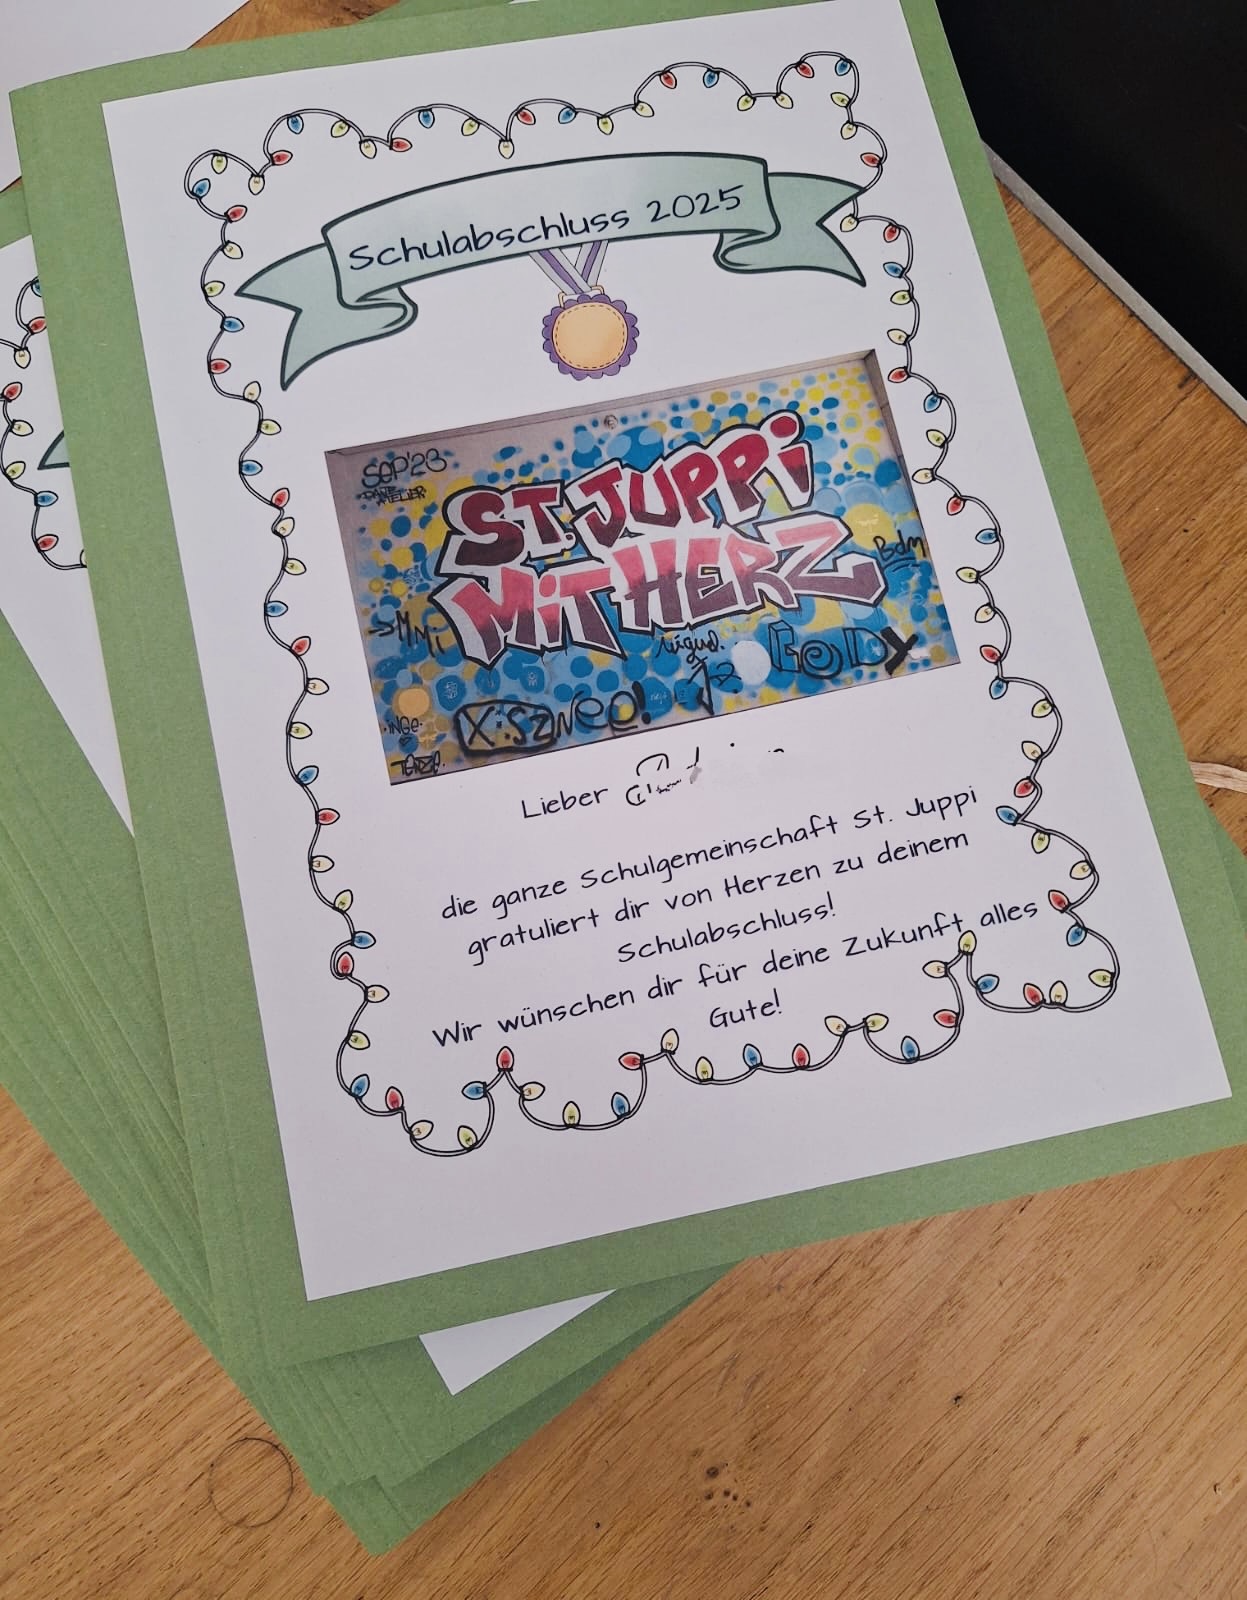 Schulabschluss 2025
SEP'23
DANE
ATELIER
ST. JUPPi
MiT HERZ
Bdm
MMi
GODY
XiSZNEO!
iNGE
Lieber
die ganze Schulgemeinschaft St. Juppi
gratuliert dir von Herzen zu deinem
Schulabschluss!
Wir wünschen dir für deine Zukunft alles
Gute!